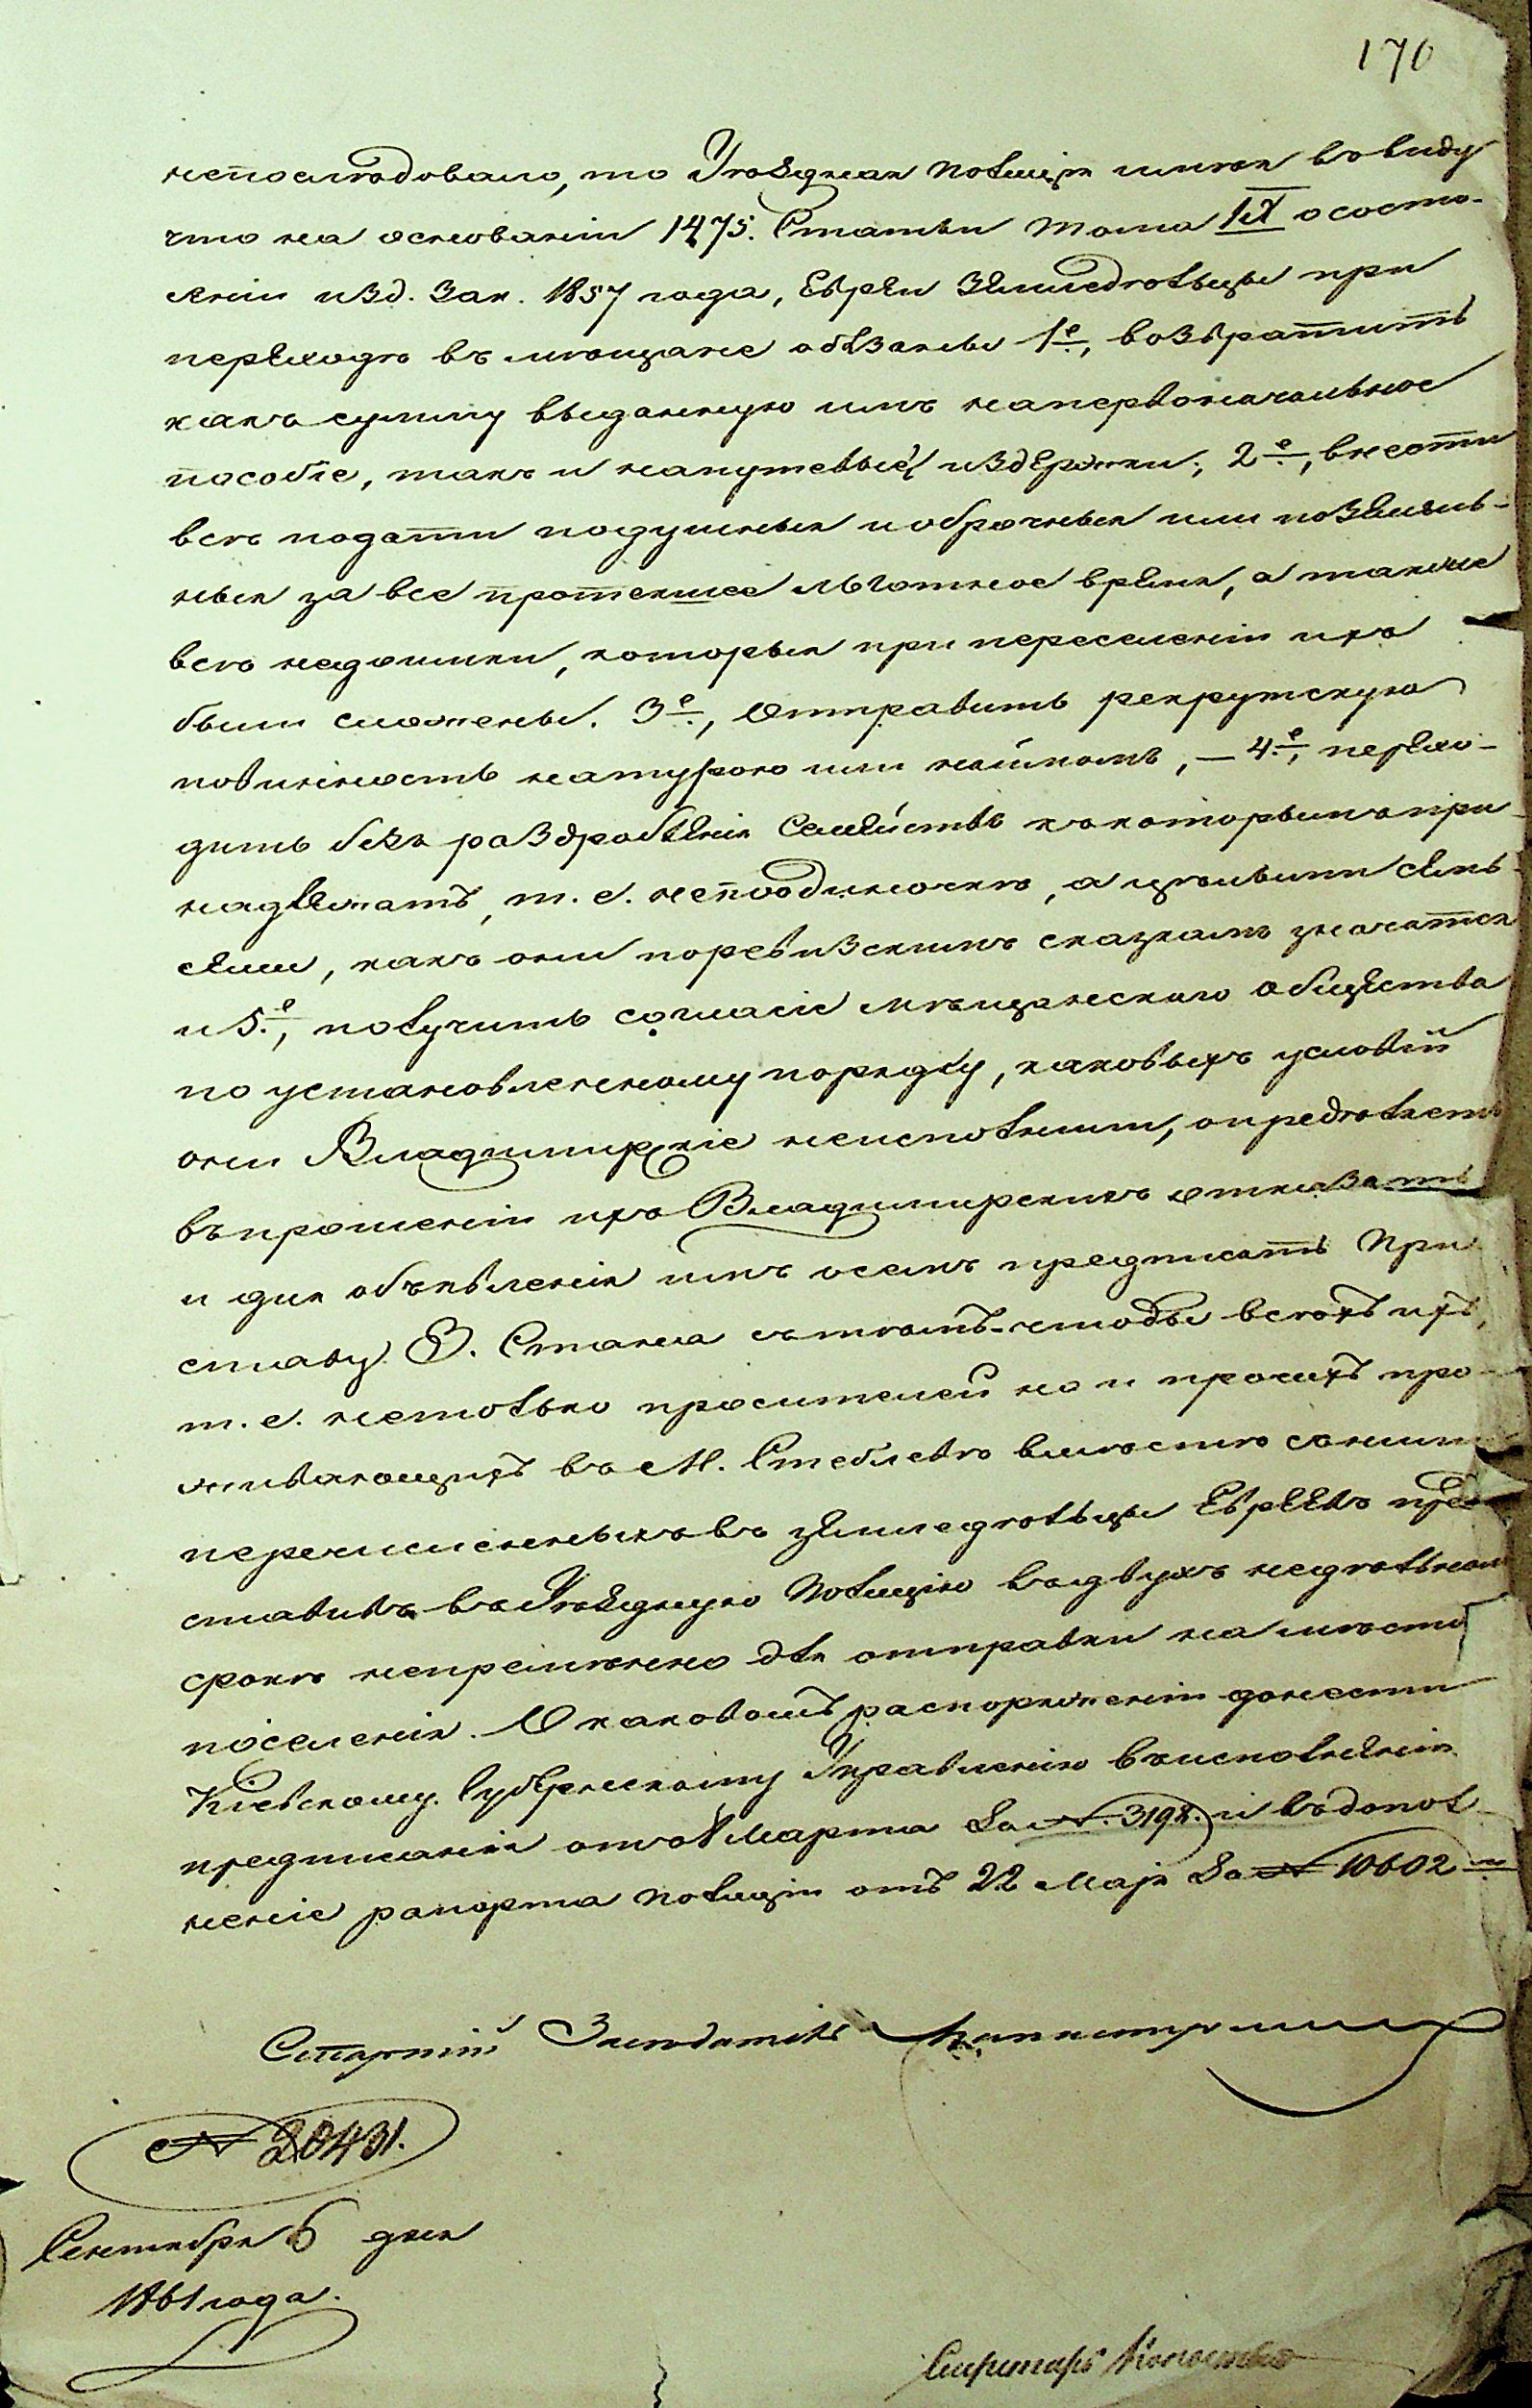 170
непослѣдовало, то Уѣздная Полиція имѣя въ виду
что на основаніи 1475. Статьи тома IX о состо-
яніи изд. Зак. 1857 года, Евреи Земледѣльцы при
переходѣ въ мѣщане обязаны 1е, возвратить
какъ сумму выданную имъ на первоначальное
пособіе, такъ и на путевые издержки; 2е, внести
всѣ подати подушныя и оброчныя или поземель-
ныя за все протекшее льготное время, а также
всѣ недоимки, которыя при переселеніи ихъ
были сложены. 3е, Отправить рекрутскую
повинность натурою или наймомъ, — 4е, перехо-
дить безъ раздробленія Семействъ къ которымъ при-
надлежатъ, т. е. непоодиночкѣ, а цѣлыми семь-
ями, какъ они по ревизскимъ сказкамъ значатся
и 5е, получить согласіе мѣщанскаго общества
по установленному порядку, каковыхъ условій
они Владимирскіе неисполнили, опредѣляетъ
въ прошеніи ихъ Владимирскихъ отказать
и для объявленія имъ о семъ предписать При
ставу 3. Стана съ тѣмъ чтобы всѣхъ ихъ,
т. е. нетолько просителей но и прочихъ про-
живающихъ въ М. Стеблевѣ вмѣстѣ съ ними
перечисленныхъ въ земледѣльцы Евреевъ пред
ставилъ въ Уѣздную Полицію въ двухъ недѣльном
срокѣ непремѣнно для отправки на мѣсто
поселенія. О каковомъ распоряженіи донести
Кіевскому Губернскому Правленію въ исполненіе
предписанія отъ Марта За № 3198. и въ допол
неніе рапорта Полиціи отъ 22 Мая За № 10602
Старшій Засѣдатель
№ 20431.
Сентября 6 дня
1861 года.
Секретарь